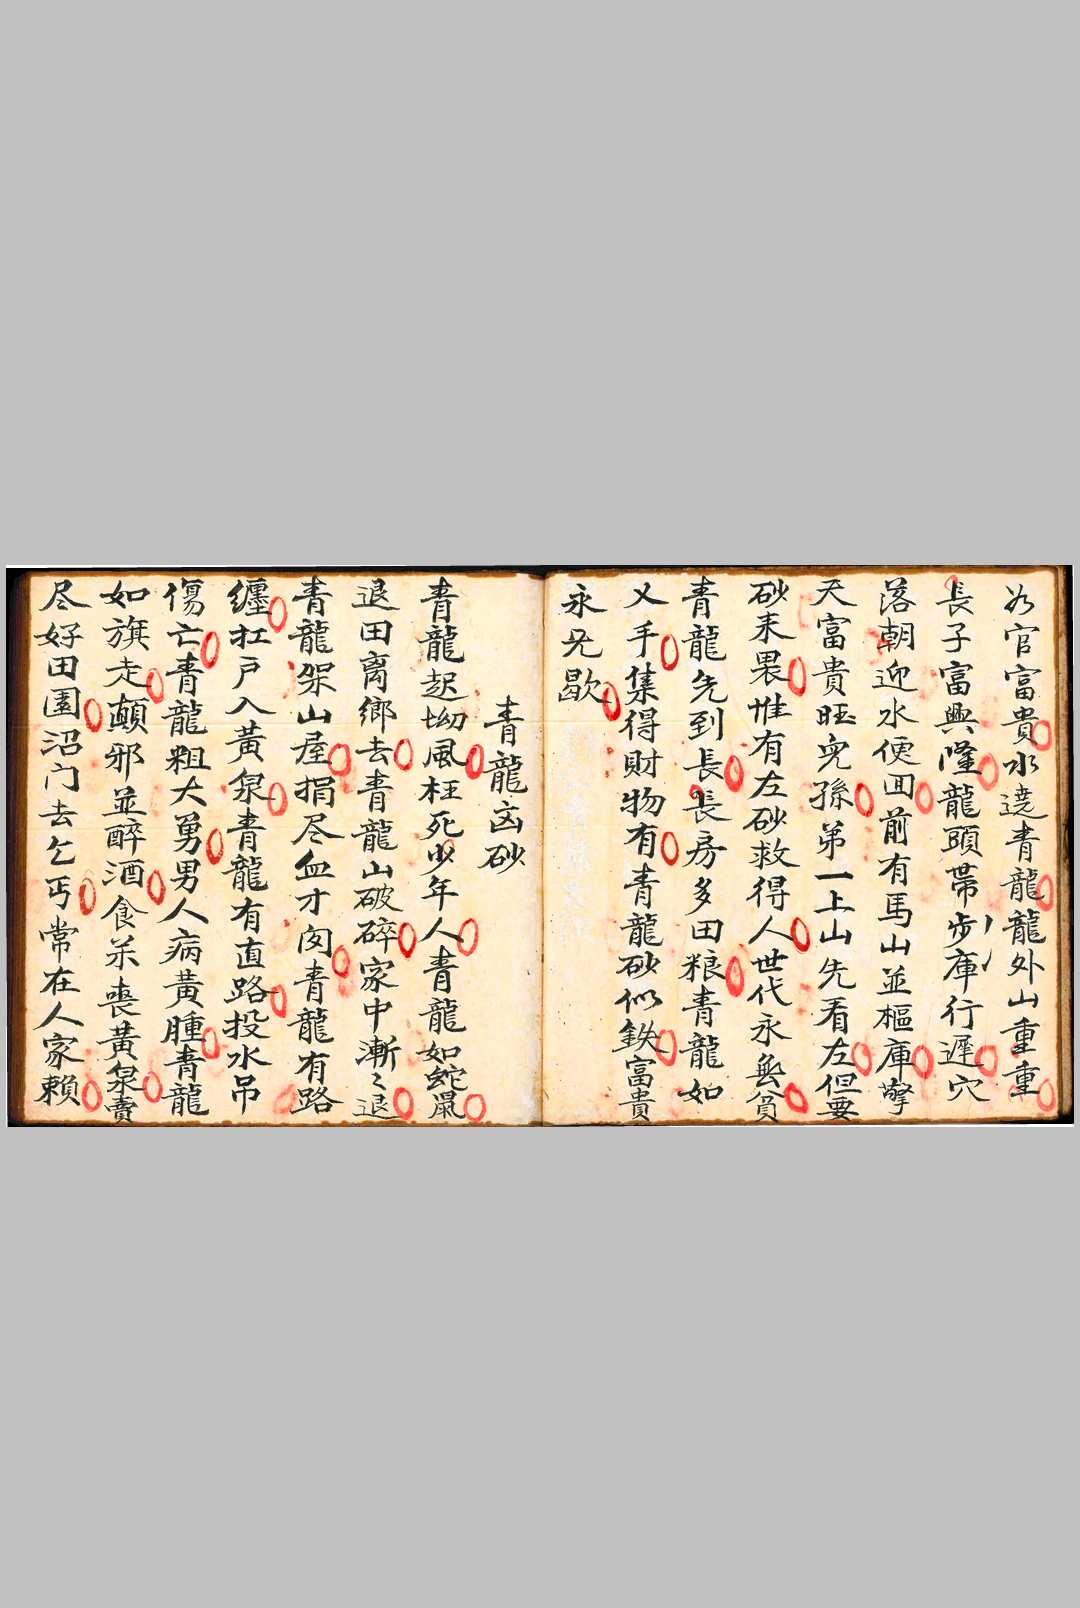 為官富貴水遶青龍龍外山重重
長子富興隆龍頭帶步庫行遲穴
落朝迎水便囬前有馬山並樞庫擎
天富貴旺児孫弟一上山先看左但要
砂来裹惟有左砂救得人世代永無貧
青龍先到長長房多田粮青龍如
乂手集得財物有青龍砂似鉄富貴
永兄歇
青龍凶砂
青龍起坳風枉死少年人青龍如蛇鼠
退田离鄉去青龍山破碎家中漸〻退
青龍架山屋捐尽血才肉青龍有路
纏扛户入黃泉青龍有直路投水吊
傷亡青龍粗大勇男人病黃腫青龍
如旗走顛邪並醉酒食茶喪黃泉賣
尽好田園沿门去乞丐常在人家賴